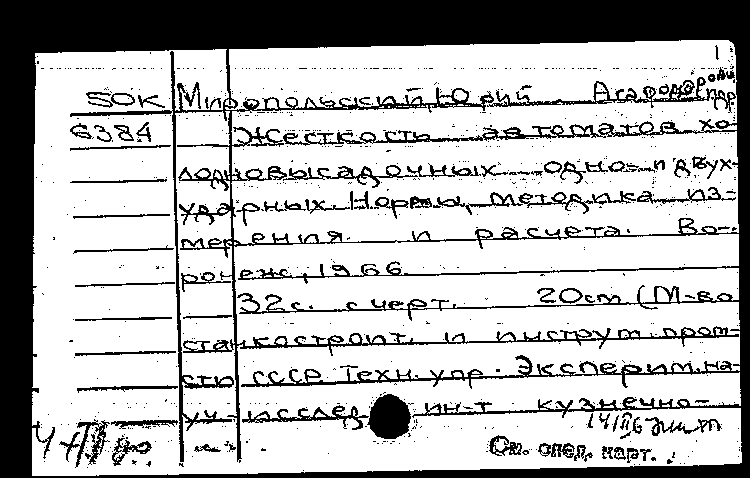 1
SOK Миропольский, Юрий
6384 Жесткость автоматов хо-
лодновысадочных одно- и двух-
ударных. Нормы, методика из-
мерения и расчета. Во-
ронеж, 1966.
32с. с черт. 20cm (М-во
станкостроит. и инструм. пром-
сти СССР. Техн. упр. Эксперим. на-
уч.-исслед. ин-т кузнечно-
См. след. карт.